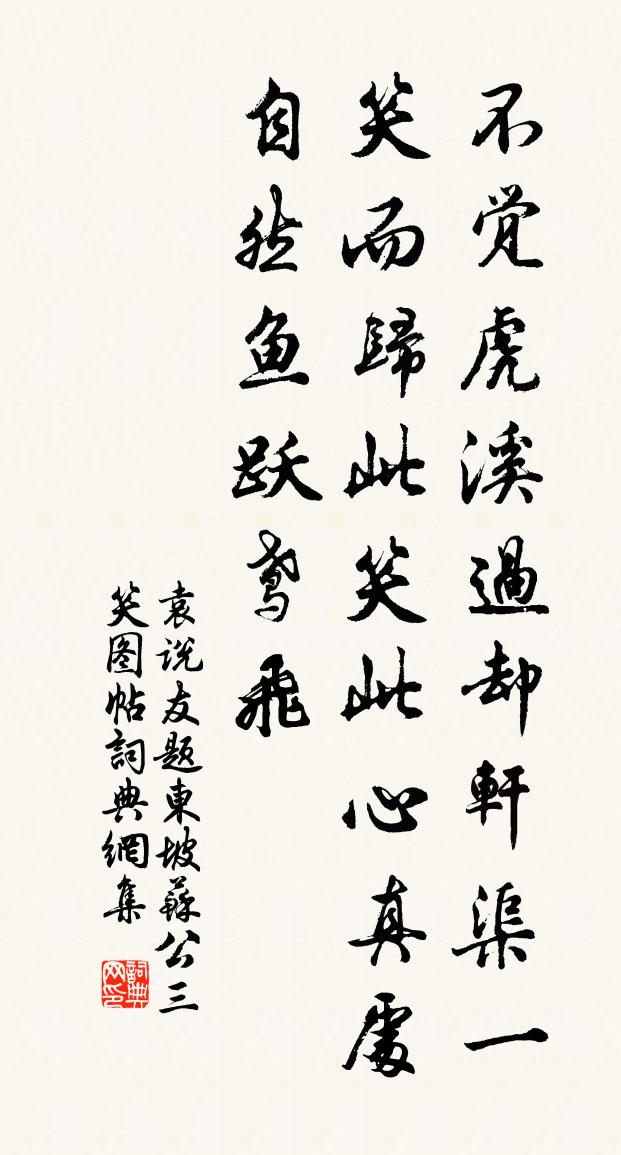 不覚虎溪過却軒渠一
笑而歸此笑此心真處
自然鱼跃鸢飛
袁说友题東坡蘇公三
笑图帖詞典網集
詞典网印